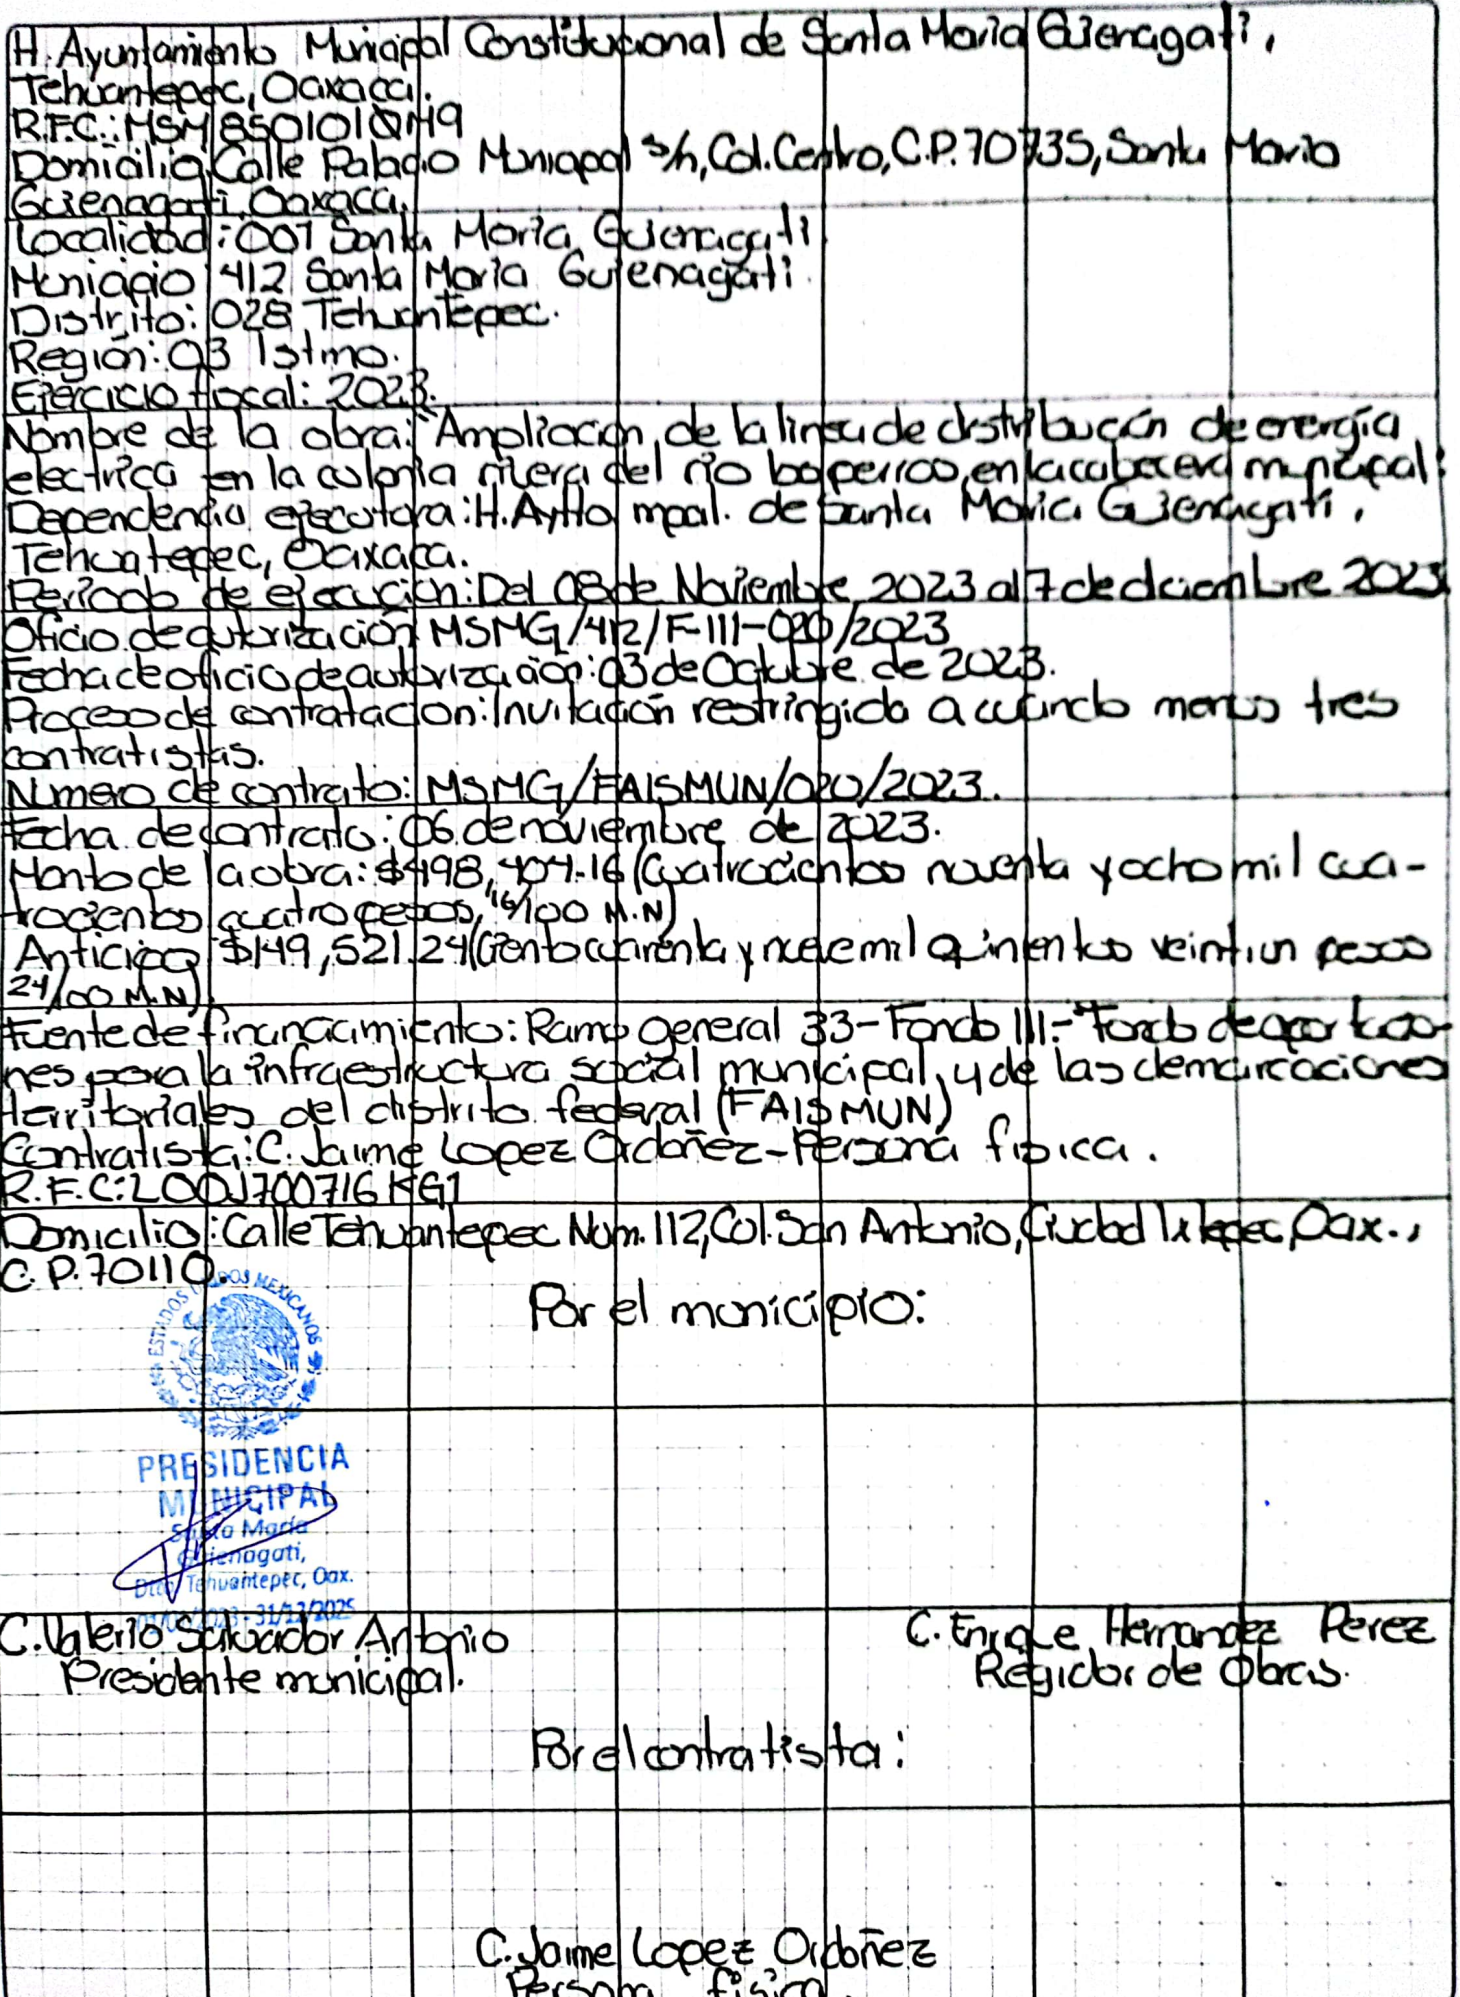 H. Ayuntamiento Municipal Constitucional de Santa Maria Guienagati,
Tehuantepec, Oaxaca.
R.F.C.: MSM850101QM9
Domicilio Calle Palacio Municipal s/n, Col. Centro, C.P. 70735, Santa Maria
Guienagati, Oaxaca.
Localidad: 001 Santa Maria Guienagati
Municipio 412 Santa Maria Guienagati.
Distrito: 028 Tehuantepec.
Región: 03 Istmo.
Ejercicio fiscal: 2023.
Nombre de la obra: "Ampliación de la linea de distribución de energía
electrica en la colonia rivera del rio los perros, en la cabecera municipal"
Dependencia ejecutora: H. Aytto mpal. de Santa Maria Guienagati,
Tehuatepec, Oaxaca.
Periodo de ejecución: Del 08 de Noviembre 2023 al 7 de diciembre 2023
Oficio de autorización MSMG/412/F-III-020/2023
Fecha de oficio de autorización: 03 de Octubre de 2023.
Proceso de contratacion: Invitación restringida a cuando menos tres
contratistas.
Número de contrato: MSMG/FAISMUN/020/2023.
Fecha de contrato: 06 de noviembre de 2023.
Monto de la obra: $498,404.16 (Cuatrocientos noventa y ocho mil cua-
trocientos cuatro pesos, 16/100 M.N)
Anticipo $149,521.24 (Ciento cuarenta y nueve mil quinientos veintiun pesos
24/100 M.N).
Fuente de financiamiento: Ramo general 33-Fondo III.-"Fondo de aportacio-
nes para la infraestructura social municipal, y de las demarcaciones
territoriales del distrito federal (FAISMUN)
Contratista: C. Jaime Lopez Ordoñez-Persona fisica.
R.F.C: LOOJ700716KG1
Domicilio: Calle Tehuantepec Num. 112, Col. San Antonio, Ciudad Ixtepec, Oax.,
C.P. 70110.
ESTADOS UNIDOS MEXICANOS
Por el municipio:
PRESIDENCIA
MUNICIPAL
Santa María
Guienagati,
Dtto. Tehuantepec, Oax.
01/01/2023 - 31/12/2025
C. Valerio Salvador Antonio
Presidente municipal.
C. Enrique Hernandez Perez
Regidor de Obras.
Por el contratista:
C. Jaime Lopez Ordoñez
Persona física.